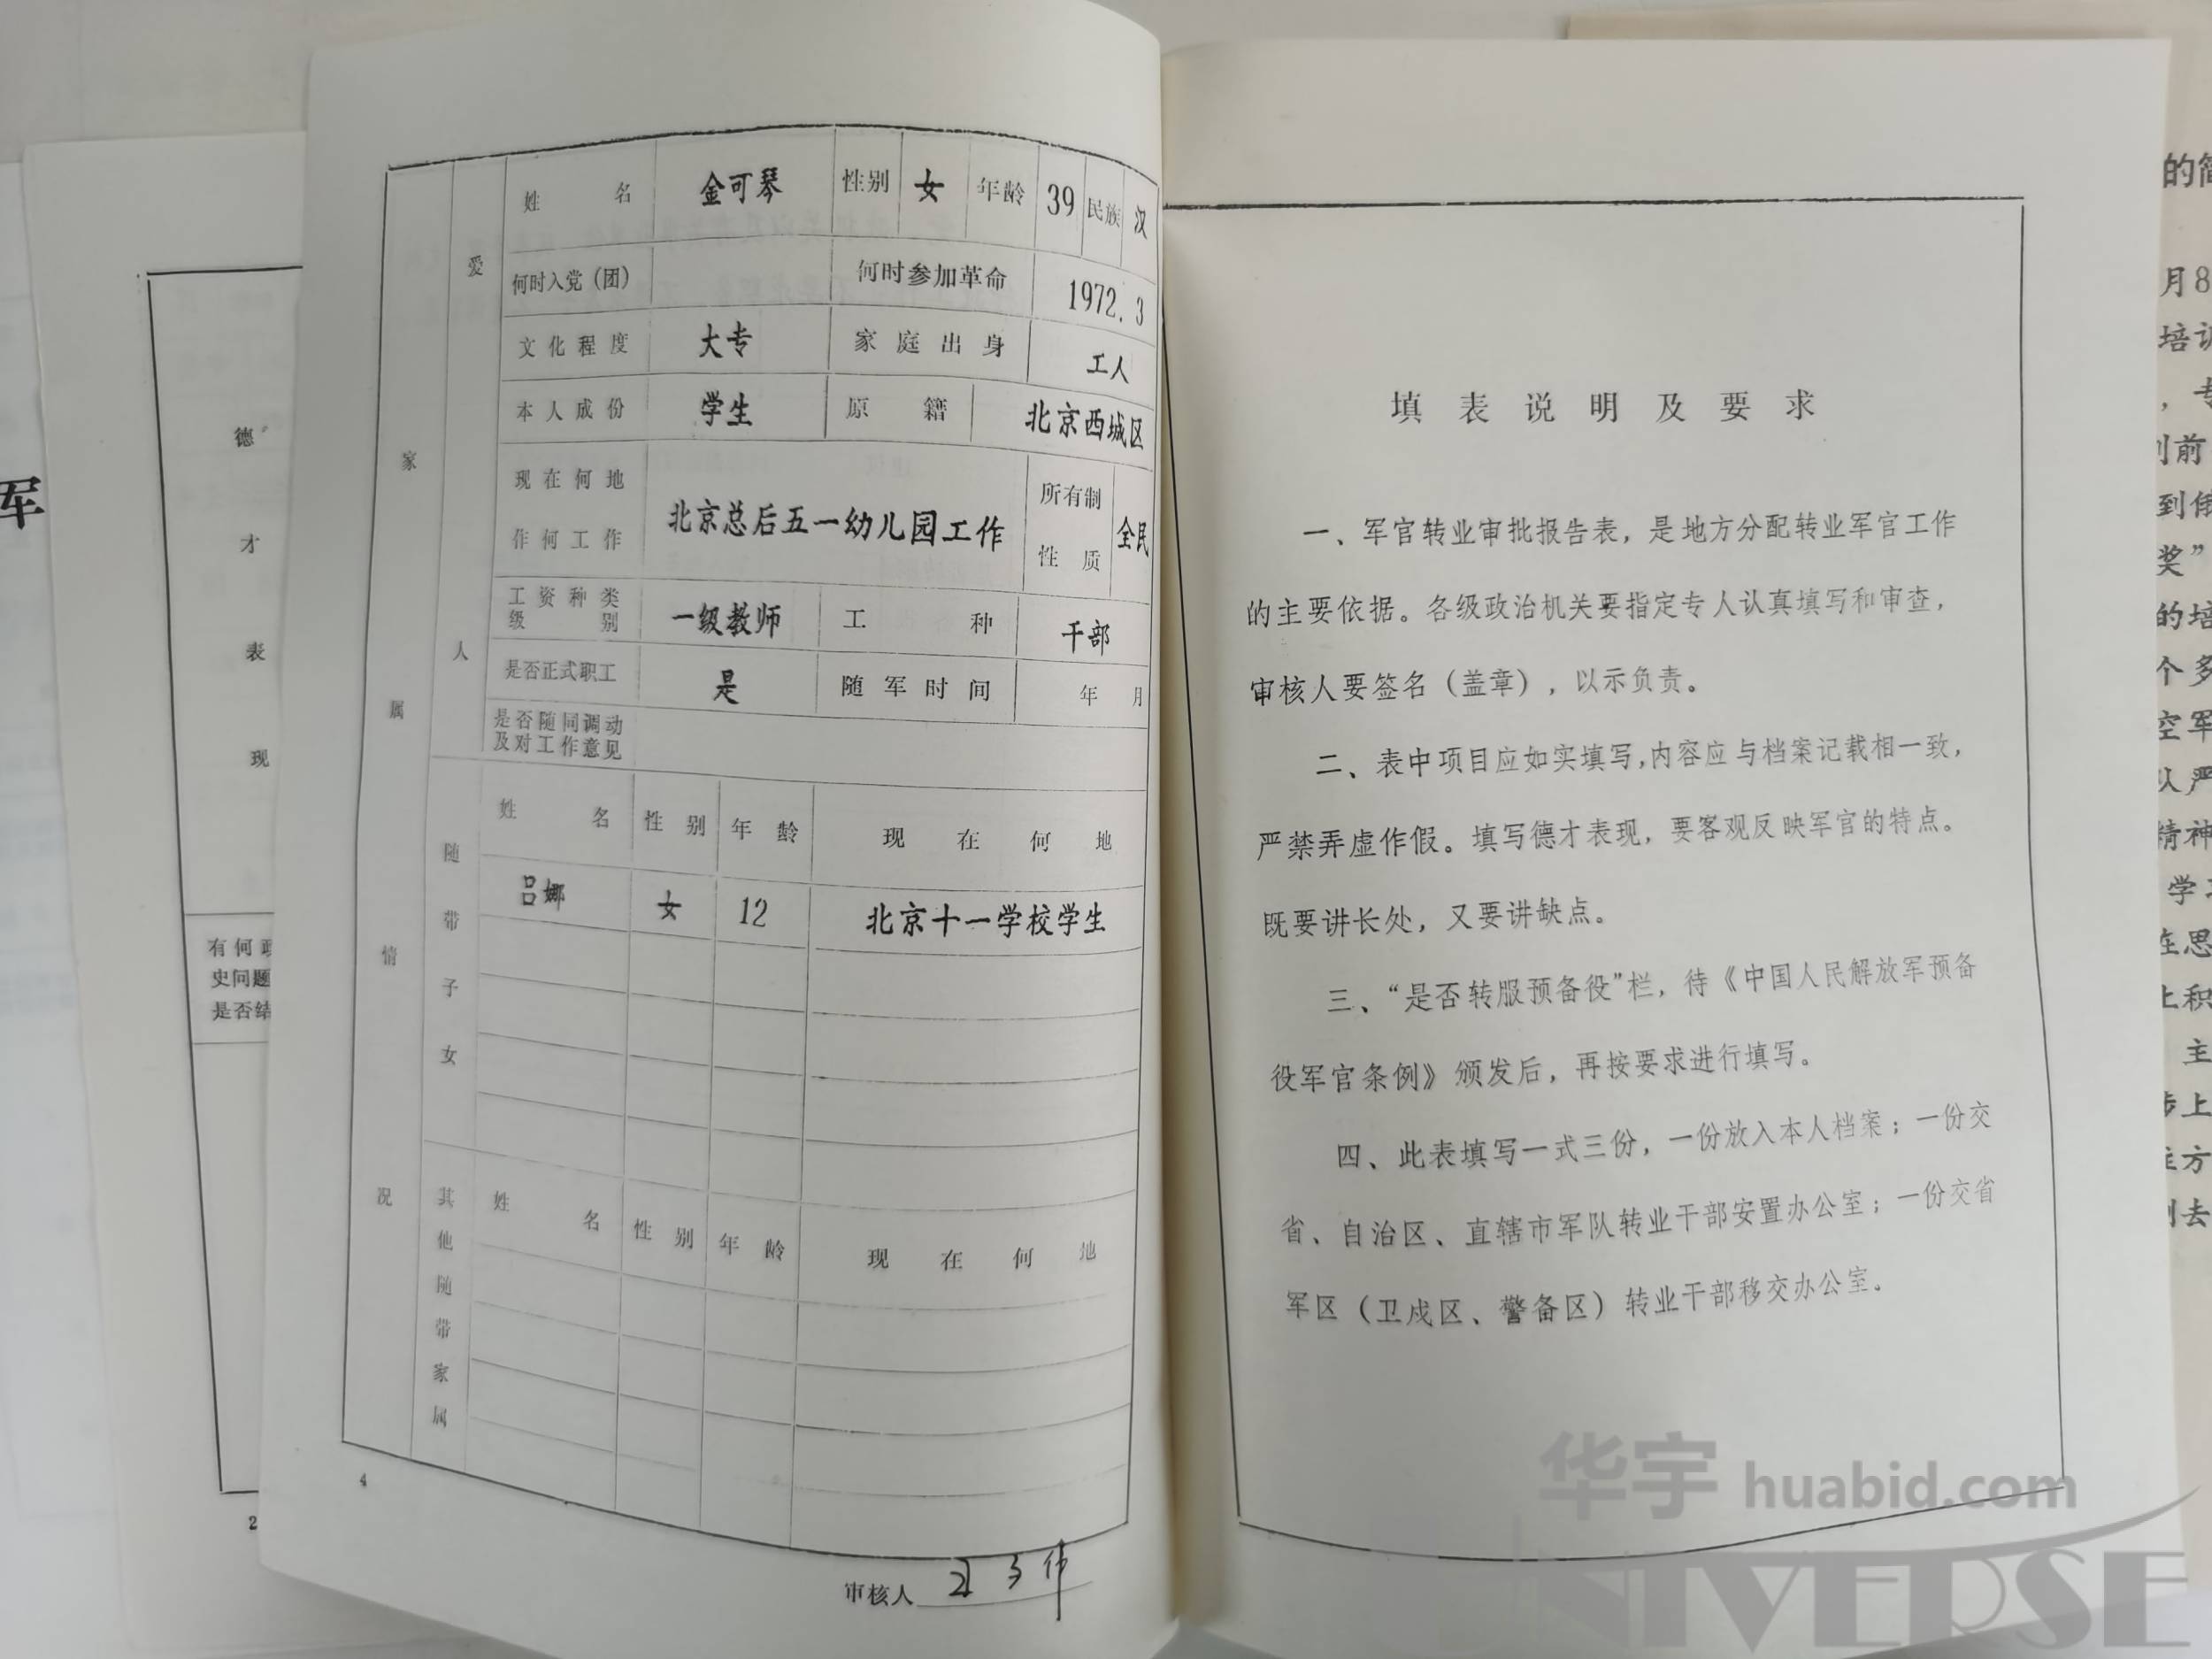 军
德
才
表
现
有何政
史问题
是否结
2
家属情况
爱人
姓名 金可琴 性别 女 年龄 39 民族 汉
何时入党（团） 何时参加革命 1972.3
文化程度 大专 家庭出身 工人
本人成份 学生 原籍 北京西城区
现在何地作何工作 北京总后五一幼儿园工作 所有制性质 全民
工资种类级别 一级教师 工种 干部
是否正式职工 是 随军时间 年 月
是否随同调动及对工作意见
随带子女
姓名 性别 年龄 现在何地
吕娜 女 12 北京十一学校学生
其他随带家属
姓名 性别 年龄 现在何地
4
审核人
填表说明及要求
一、军官转业审批报告表，是地方分配转业军官工作
的主要依据。各级政治机关要指定专人认真填写和审查，
审核人要签名（盖章），以示负责。
二、表中项目应如实填写，内容应与档案记载相一致，
严禁弄虚作假。填写德才表现，要客观反映军官的特点。
既要讲长处，又要讲缺点。
三、“是否转服预备役”栏，待《中国人民解放军预备
役军官条例》颁发后，再按要求进行填写。
四、此表填写一式三份，一份放入本人档案；一份交
省、自治区、直辖市军队转业干部安置办公室；一份交省
军区（卫戍区、警备区）转业干部移交办公室。
的简
月8
培训
，专
前
到俄
奖”
的培
个多
空军
严
精神
学习
在思
上积
主
上
方
去
华宇 huabid.com
NIVERSE